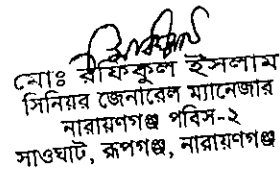 মোঃ রফিকুল ইসলাম
সিনিয়র জেনারেল ম্যানেজার
নারায়ণগঞ্জ পবিস-২
সাওঘাট, রূপগঞ্জ, নারায়ণগঞ্জ